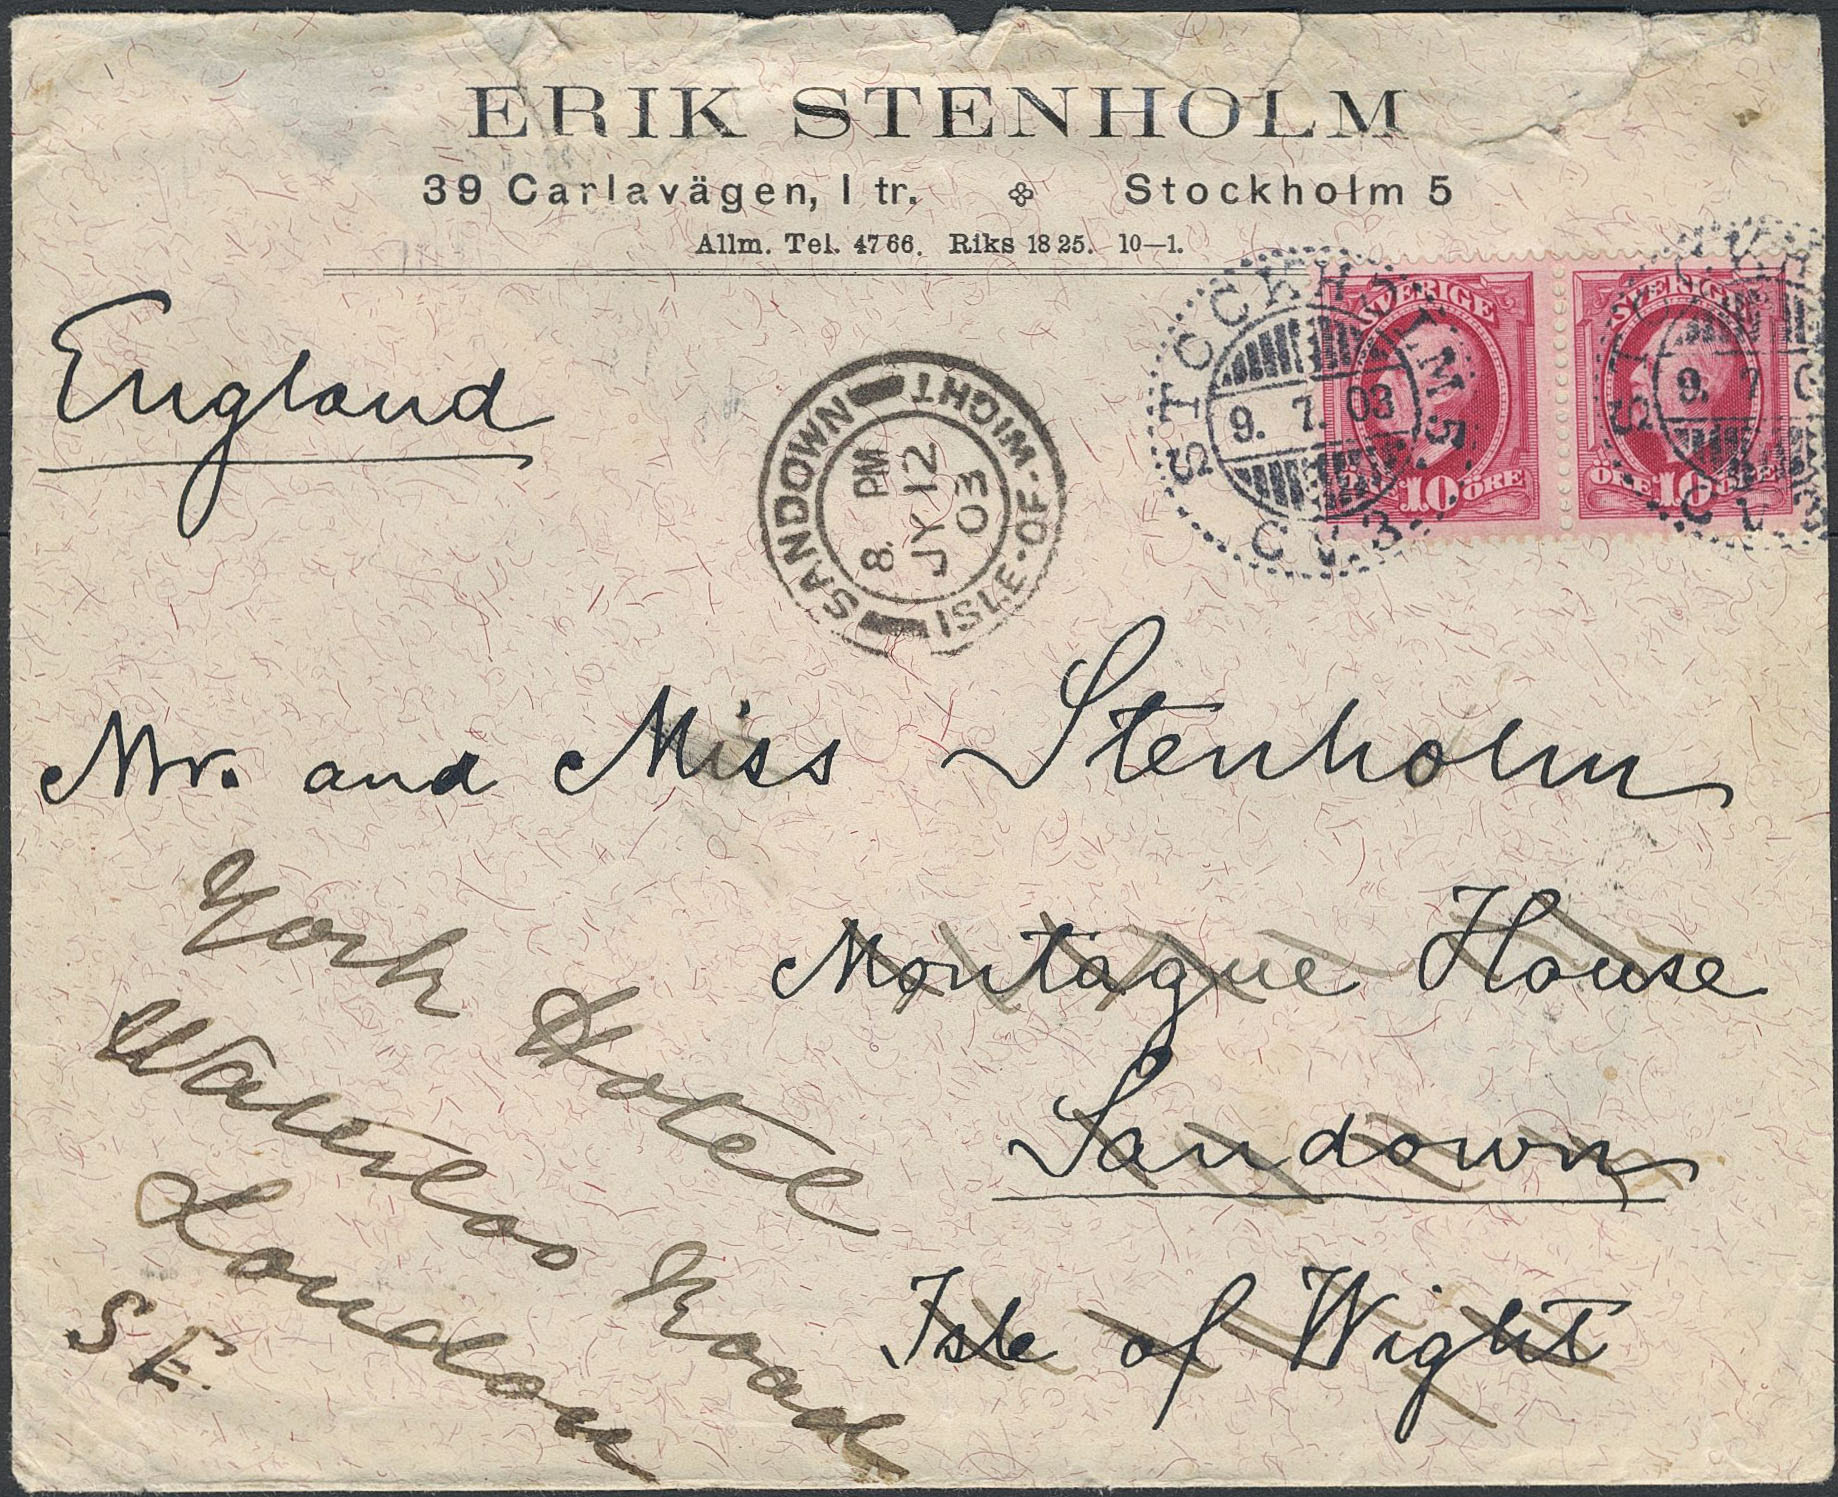 ERIK STENHOLM
39 Carlavägen, 1 tr. Stockholm 5
Allm. Tel. 47 66. Riks 18 25. 10—1.
England
SANDOWN
ISLE-OF-WIGHT
8. PM
JY 12
03
STOCKHOLM 5
9. 7. 03
SVERIGE
10 ÖRE
SVERIGE
ÖRE 10 ÖRE
9. 7
Mr. and Miss Stenholm
Montague House
Sandown
Isle of Wight
York Hotel
Waterloo Road
London
S E.